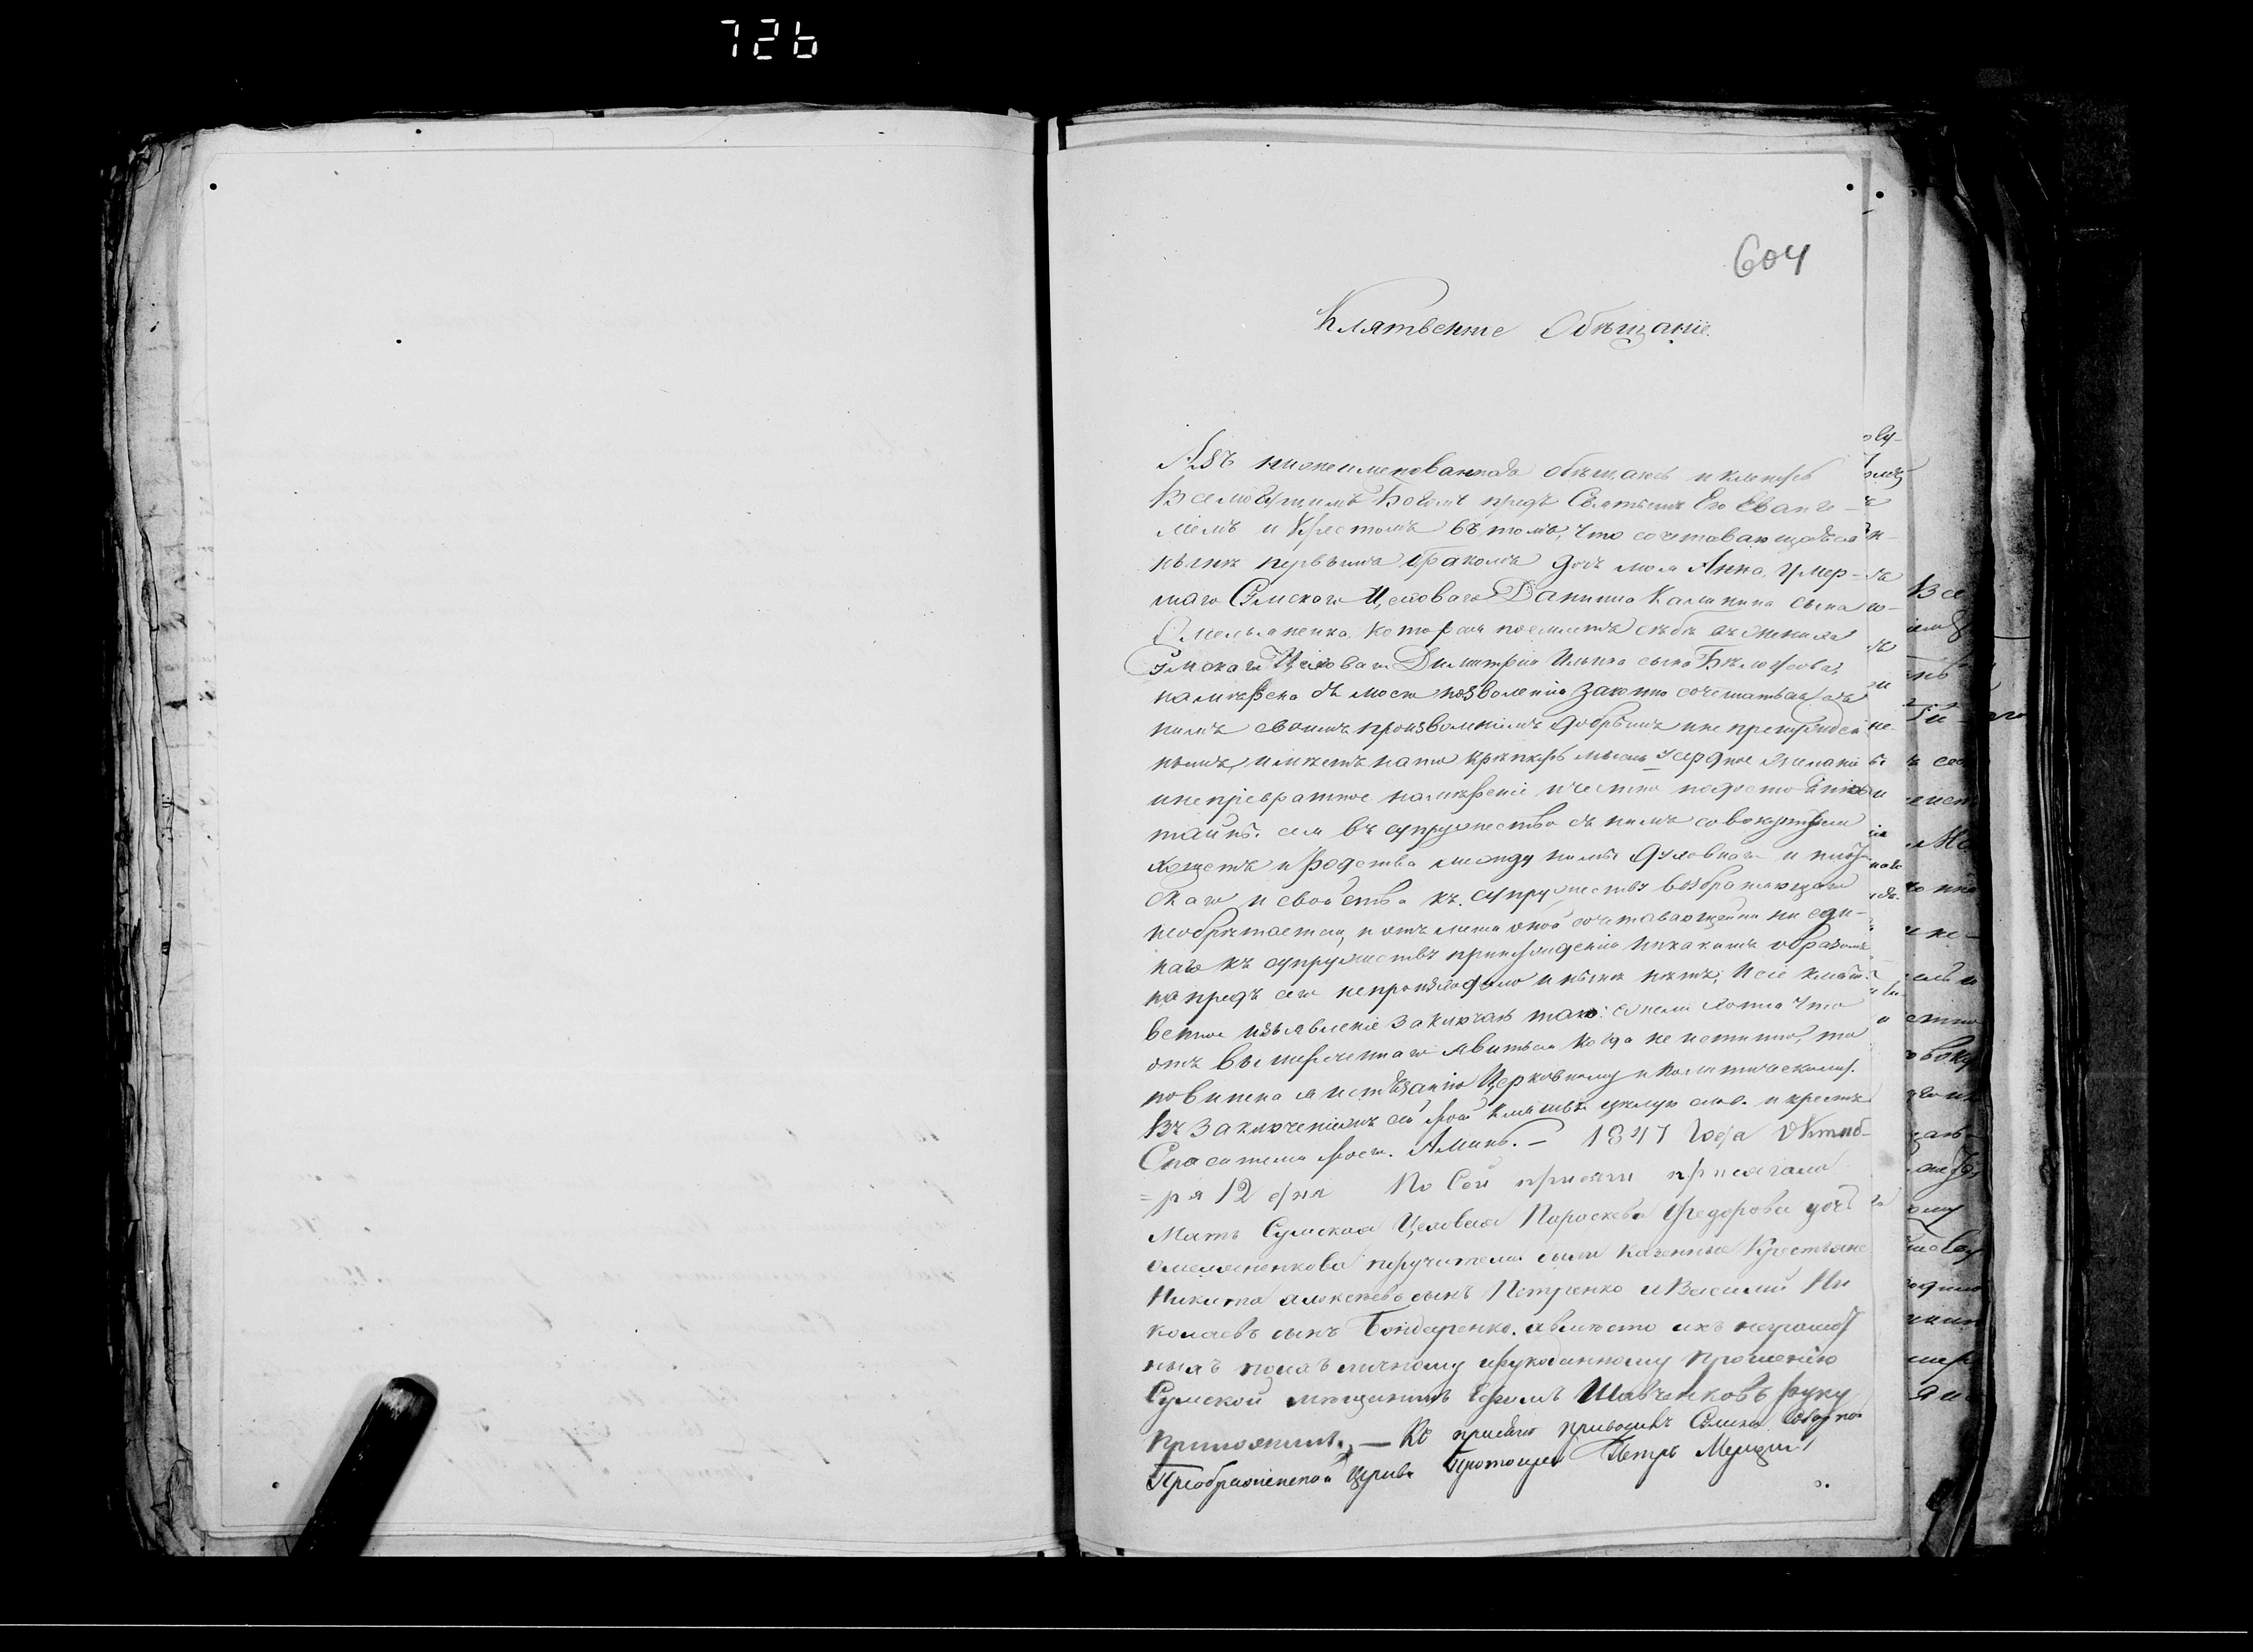 726
604
Клятвенне Обѣщаніе.
Азъ нижеименованная обѣщаюсь и кленусь
Всемогущимъ Богомъ предъ Святымъ Его Еванге-
ліемъ и Крестомъ въ томъ, что сочетавающаяся
нынѣ первымъ бракомъ дочь моя Анна, умер-
шаго Сумскаго Цеховаго Даниила Калинина сына
Омельяненка, которая поемлетъ себѣ въ женила
Сумскаго Цеховаго Димитрія Ильина сына Бѣлоусова,
намѣрена съ моего позволенія законно сочетаться съ
нимъ своимъ произволеніемъ добрымъ и не принужден
нымъ, имѣетъ на то крѣпкую мысль усердное желаніе
и непревратное намѣреніе и честно
тайнѣ сея въ супружество съ нимъ совокупитися
хощетъ и родства между ними духовнаго и плот
скаго и свойства къ супружеству возбраняющаго
необрѣтается, и отъ меня оной сочетавающейся ни еди-
наго къ супружеству принужденія никакимъ образомъ
напредъ сего не происходило и нынѣ нѣтъ; И сіе клят
венное изъявленіе заключаю тако: ежели хотя что
отъ вышереченнаго явиться когда не истинно, то
повинна я истязанію Церковному и Политическому.
Въ заключеніемъ сей моей клятвы цѣлую слова и крестъ
Спасителя моего. Аминь. — 1847 года Октяб-
=ря 12 дня По Сей присяги присягала
Мать Сумская Цеховая Параскева Федорова дочь
Омеляненкова поручители были казенные Крестьяне
Никита алексѣевъ сынъ Петренко и Василий Ни
колаевъ сынъ Бондаренко. а вмѣсто ихъ неграмот
ныхъ по ихъ личному и рукоданному прошенію
Сумской мещанинъ Ефимъ Шевченковъ руку
приложилъ. — Къ присягѣ приводилъ Сумской Собор но
Преображенской Церкви Протоиерей Петръ